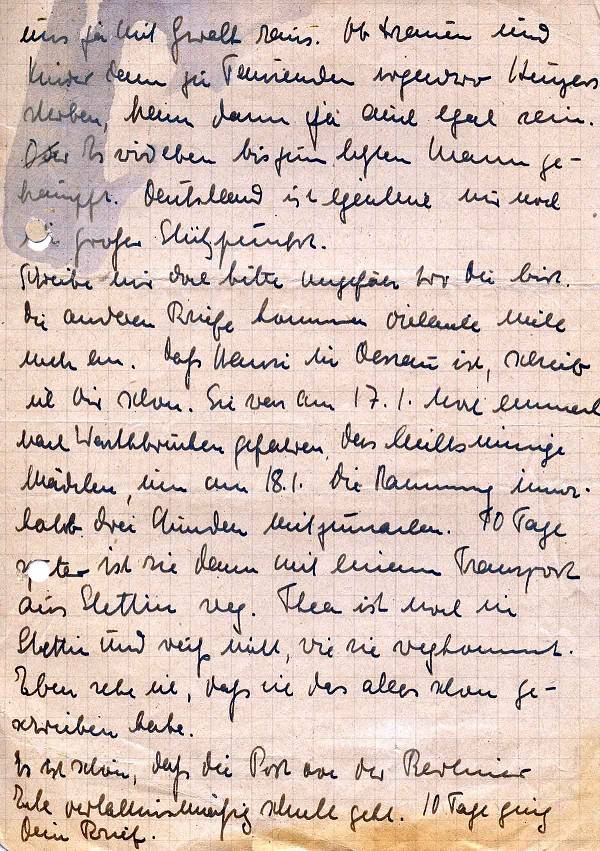 uns ja mit Gewalt raus. Ob Frauen und
Kinder dann zu Tausenden irgendwo Hungers
sterben, kann dann ja auch egal sein.
Es wird eben bis zum letzten Mann ge-
kämpft. Deutschland ist eigentlich nur noch
ein großer Stützpunkt.
Schreibe mir doch bitte ungefähr wo Du bist.
Die anderen Briefe kommen vielleicht nicht
mehr an. Daß Hansi in Dessau ist, schrieb
ich Dir schon. Sie war am 17.1. noch einmal
nach Warthbrücken gefahren, das
Mädchen, um am 18.1. die Räumung inner-
halb drei Stunden mitzumachen. 10 Tage
später ist sie dann mit einem Transport
aus Stettin weg. Thea ist noch in
Stettin und weiß nicht, wie sie wegkommt.
Eben sehe ich, daß ich das alles schon ge-
schrieben habe.
Es ist schön, daß die Post aus der Berliner
Ecke verhältnismäßig schnell geht. 10 Tage ging
Dein Brief.